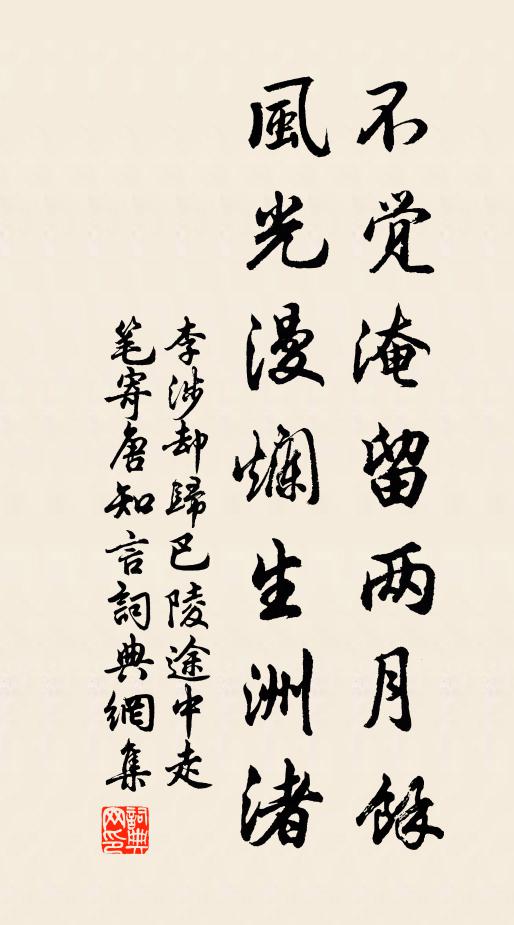 不覚淹留两月餘
風光漫爛生洲渚
李涉却歸巴陵途中走
笔寄唐知言詞典網集
詞典网印